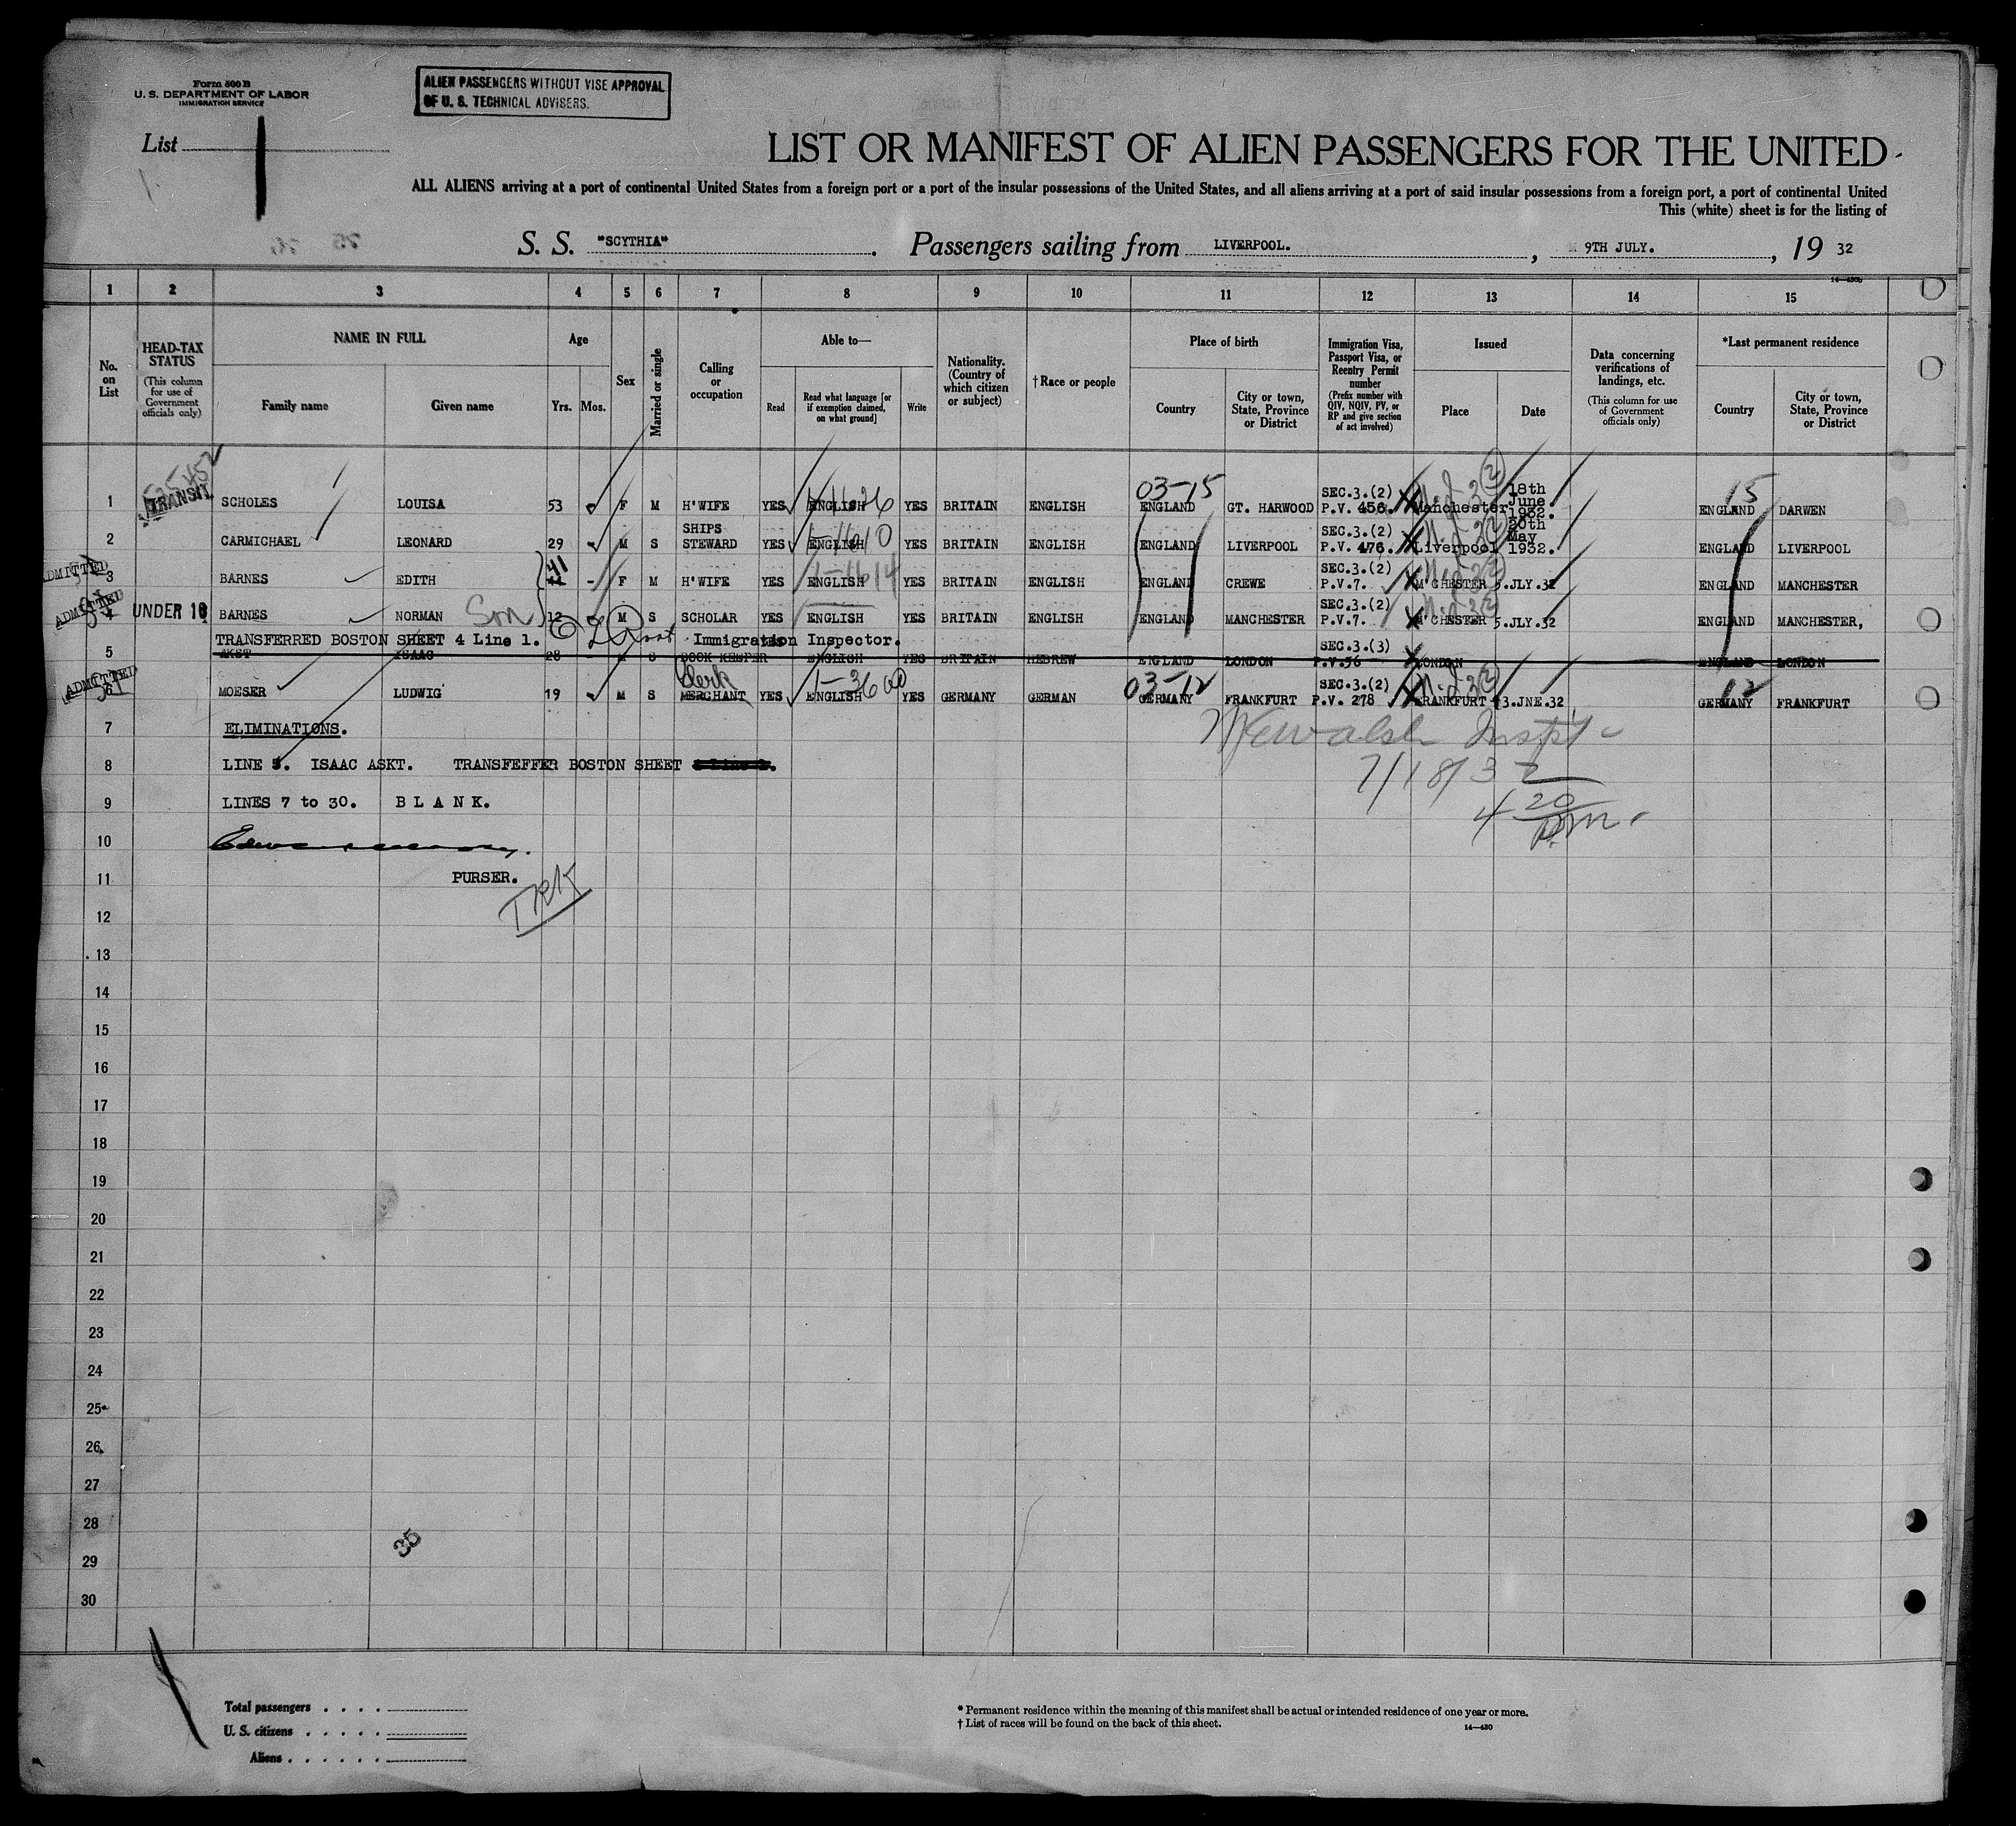 Form 500 B
U. S. DEPARTMENT OF LABOR
IMMIGRATION SERVICE
ALIEN PASSENGERS WITHOUT VISE APPROVAL
OF U. S. TECHNICAL ADVISERS.
List 1
LIST OR MANIFEST OF ALIEN PASSENGERS FOR THE UNITED
ALL ALIENS arriving at a port of continental United States from a foreign port or a port of the insular possessions of the United States, and all aliens arriving at a port of said insular possessions from a foreign port, a port of continental United
This (white) sheet is for the listing of
S. S. "SCYTHIA". Passengers sailing from LIVERPOOL., 9TH JULY., 19 32
14—430b
1 2 3 4 5 6 7 8 9 10 11 12 13 14 15
No. on List
HEAD-TAX STATUS
(This column for use of Government officials only)
NAME IN FULL
Family name Given name
Age
Yrs. Mos.
Sex
Married or single
Calling or occupation
Able to—
Read Read what language [or if exemption claimed, on what ground] Write
Nationality. (Country of which citizen or subject)
† Race or people
Place of birth
Country City or town, State, Province or District
Immigration Visa, Passport Visa, or Reentry Permit number
(Prefix number with QIV, NQIV, PV, or RP and give section of act involved)
Issued
Place Date
Data concerning verifications of landings, etc.
(This column for use of Government officials only)
*Last permanent residence
Country City or town, State, Province or District
03-15 15
1 TRANSIT SCHOLES LOUISA 53 F M H'WIFE YES ENGLISH YES BRITAIN ENGLISH ENGLAND GT. HARWOOD SEC.3.(2) P.V. 456. Manchester 18th June 1932. ENGLAND DARWEN
2 CARMICHAEL LEONARD 29 M S SHIPS STEWARD YES ENGLISH YES BRITAIN ENGLISH ENGLAND LIVERPOOL SEC.3.(2) P.V. 476. Liverpool 20th May 1932. ENGLAND LIVERPOOL
ADMITTED
3 BARNES EDITH 41 F M H'WIFE YES ENGLISH YES BRITAIN ENGLISH ENGLAND CREWE SEC.3.(2) P.V.7. M'CHESTER 5.JLY.32 ENGLAND MANCHESTER
ADMITTED
4 UNDER 16 BARNES NORMAN Son 12 M S SCHOLAR YES ENGLISH YES BRITAIN ENGLISH ENGLAND MANCHESTER SEC.3.(2) P.V.7. M'CHESTER 5.JLY.32 ENGLAND MANCHESTER,
TRANSFERRED BOSTON SHEET 4 Line 1. Immigration Inspector.
5 AKST ISAAC 28 M S BOOK KEEPER YES ENGLISH YES BRITAIN HEBREW ENGLAND LONDON SEC.3.(3) P.V.56 LONDON ENGLAND LONDON
ADMITTED
Clerk 1-3600 03-12 12
6 MOESER LUDWIG 19 M S MERCHANT YES ENGLISH YES GERMANY GERMAN GERMANY FRANKFURT SEC.3.(2) P.V. 278 FRANKFURT 3.JNE.32 GERMANY FRANKFURT
7 ELIMINATIONS.
8 LINE 5. ISAAC ASKT. TRANSFEFFER BOSTON SHEET
7/18/32
9 LINES 7 to 30. B L A N K.
4 20 p.m.
10
11 PURSER.
12
13
14
15
16
17
18
19
20
21
22
23
24
25
26
27
28
35
29
30
Total passengers
U. S. citizens
Aliens
* Permanent residence within the meaning of this manifest shall be actual or intended residence of one year or more.
† List of races will be found on the back of this sheet.
14—430